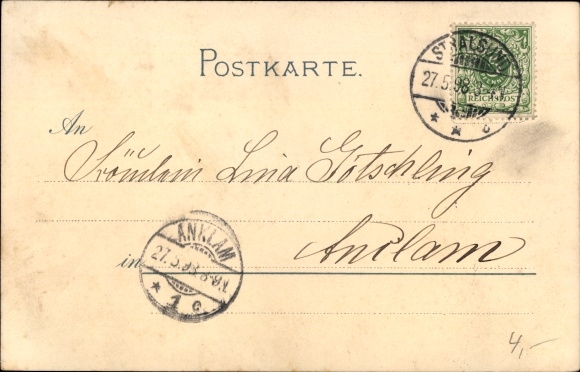 POSTKARTE.
STRALSUND
27.5.98.
* * c
REICHSPOST
An
Fräulein Lina Götschling
in Anclam
ANKLAM
27.5.98.8-9V.
* 1 c.
4,-